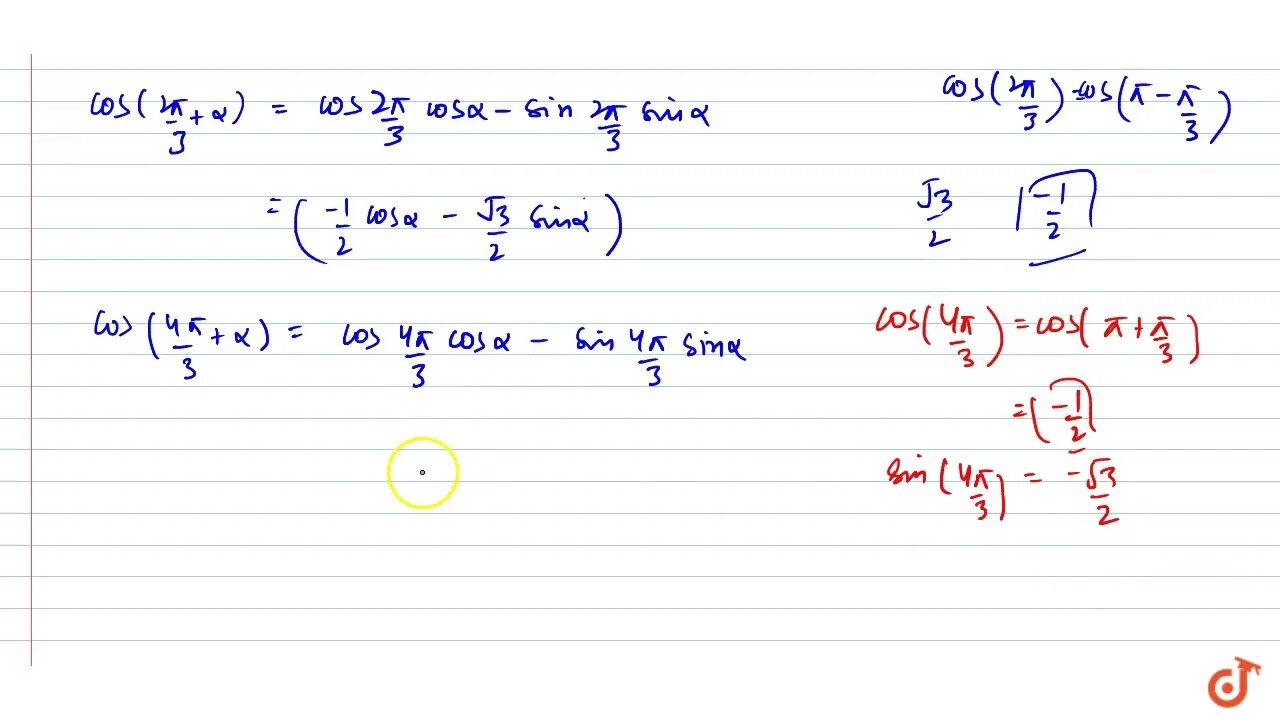 cos(2π/3 + α) = cos 2π/3 cosα - sin 2π/3 sinα
= (-1/2 cosα - √3/2 sinα)
cos(4π/3 + α) = cos 4π/3 cosα - sin 4π/3 sinα
cos(2π/3) = cos(π - π/3)
√3/2 (-1/2)
cos(4π/3) = cos(π + π/3)
= (-1/2)
sin(4π/3) = -√3/2